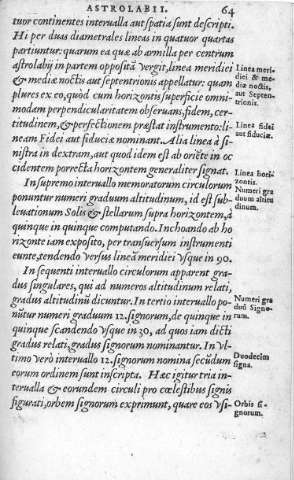 ASTROLABII. 64
tuor continentes interualla aut spatia sunt descripti.
Hi per duas diametrales lineas in quatuor quartas
partiuntur: quarum ea quæ ab armilla per centrum
astrolabij in partem oppositā vergit, linea meridiei
& mediæ noctis aut septentrionis appellatur: quam
plures ex eo, quòd cum horizontis superficie omni-
modam perpendicularitatem obseruans, fidem, cer-
titudinem, & perfectionem præstat instrumento: li-
neam Fidei aut fiduciæ nominant. Alia linea à si-
nistra in dextram, aut quod idem est ab oriēte in oc
cidentem porrecta horizontem generaliter signat.
In supremo interuallo memoratorum circulorum
ponuntur numeri graduum altitudinum, id est sub-
leuationum Solis & stellarum supra horizontem, à
quinque in quinque computando. Inchoando ab ho
rizonte iam exposito, per transuersum instrumenti
eunte, tendendo versus lineā meridiei vsque in 90.
In sequenti interuallo circulorum apparent gra-
dus singulares, qui ad numeros altitudinum relati,
gradus altitudinū dicuntur. In tertio interuallo po-
nūtur numeri graduum 12. signorum, de quinque in
quinque scandendo vsque in 30, ad quos iam dicti
gradus relati, gradus signorum nominantur. In vl-
timo verò interuallo 12. signorum nomina secūdum
eorum ordinem sunt inscripta. Hæc igitur tria in-
terualla & eorundem circuli pro cœlestibus signis
figurati, orbem signorum exprimunt, quare eos vsi-
Linea meri-
diei & me-
diæ noctis,
aut Septen-
trionis.
Linea fidei
aut fiduciæ.
Linea hori-
zontis.
Numeri gra
duum altitu
dinum.
Numeri gra
duū Signo-
rum.
Duodecim
signa.
Orbis si-
gnorum.